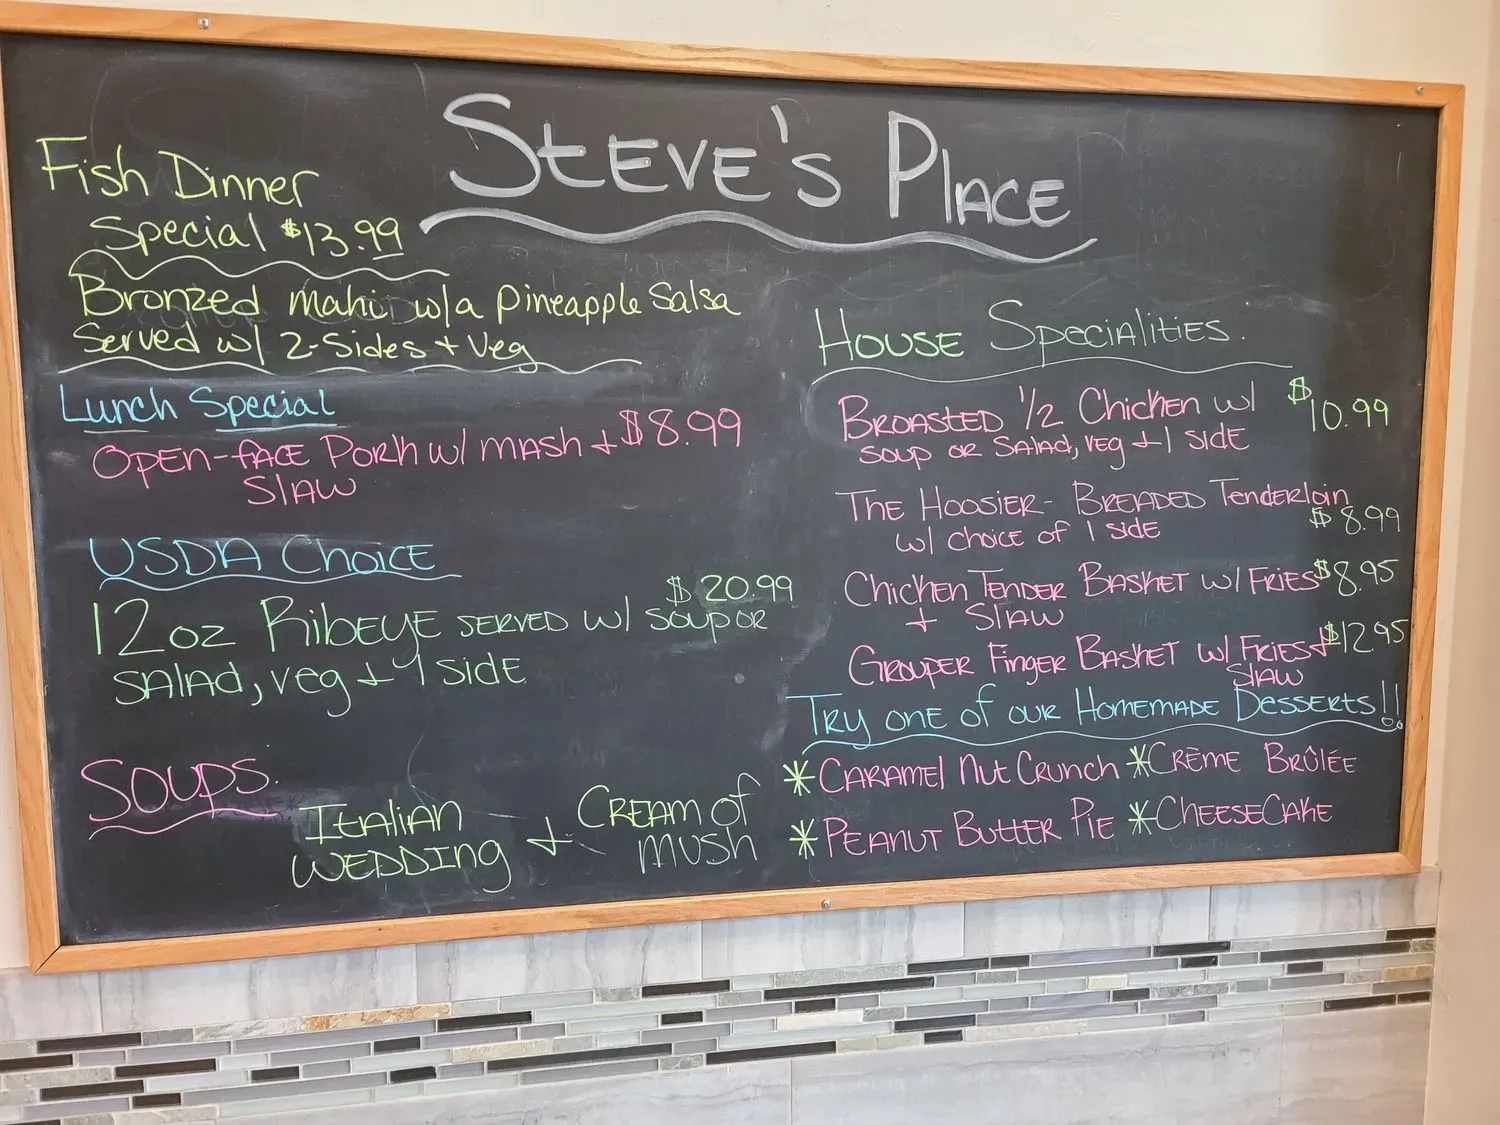 Steve's Place
Fish Dinner
Special $13.99
Bronzed Mahi w/a Pineapple Salsa
Served w/ 2-Sides + Veg
Lunch Special
Open-Face Pork w/ Mash + $8.99
Slaw
USDA Choice
$20.99
12oz Ribeye served w/ soup or
salad, veg + 1 side
Soups
Italian
Wedding + Cream of
Mush
House Specialities
Broasted 1/2 Chicken w/ $10.99
soup or salad, veg + 1 side
The Hoosier - Breaded Tenderloin
w/ choice of 1 side $8.99
Chicken Tender Basket w/ Fries $8.95
+ Slaw
Grouper Finger Basket w/ Fries + $12.95
Slaw
Try one of our Homemade Desserts!!
*Caramel Nut Crunch *Crème Brûlée
*Peanut Butter Pie *Cheesecake